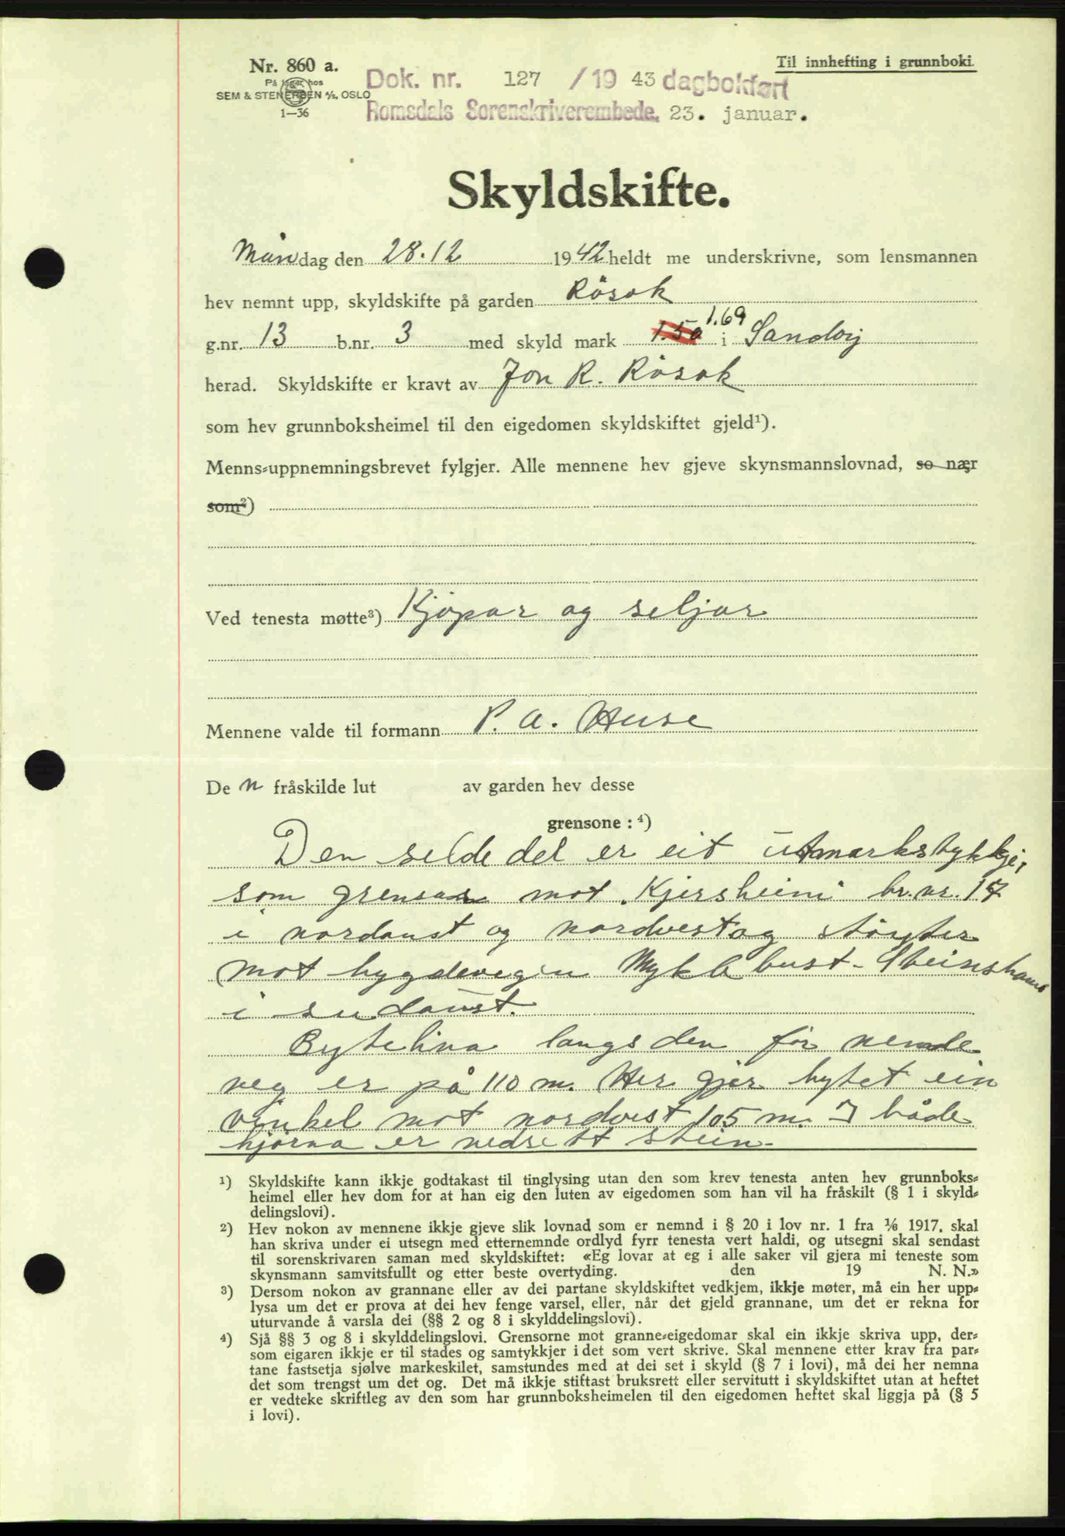 Nr. 860 a.
På lager hos
SEM & STENERSEN A/S, OSLO
1—36
Til innhefting i grunnboki.
Dok. nr. 127 /19 43 dagbokført
Romsdals Sorenskriverembede, 23. januar.
Skyldskifte.
Måndag den 28.12 1942 heldt me underskrivne, som lensmannen
hev nemnt upp, skyldskifte på garden Rösok
g.nr. 13 b.nr. 3 med skyld mark 1.50 1.69 i Sandøy
herad. Skyldskifte er kravt av Jon R. Rösok
som hev grunnboksheimel til den eigedomen skyldskiftet gjeld¹).
Menns-uppnemningsbrevet fylgjer. Alle mennene hev gjeve skynsmannslovnad, so nær
som²)
Ved tenesta møtte³) Kjøpar og seljar
Mennene valde til formann P. A. Huse
De n fråskilde lut av garden hev desse
grensone: ⁴)
Den selde del er eit utmarkstykkje,
som grensar mot "Kjersheim" br.nr. 17
i nordaust og nordvest og støyter
mot bygdevegin Myklebust - Steinshamn
i sudaust.
Bytelina langs den før nemde
veg er på 110 m. Her gjer bytet ein
vinkel mot nordvest 105 m. I både
hjørna er nedsett stein.
¹) Skyldskifte kann ikkje godtakast til tinglysing utan den som krev tenesta anten hev grunnboks-
heimel eller hev dom for at han eig den luten av eigedomen som han vil ha fråskilt (§ 1 i skyld-
delingslovi).
²) Hev nokon av mennene ikkje gjeve slik lovnad som er nemnd i § 20 i lov nr. 1 fra 1/6 1917, skal
han skriva under ei utsegn med etternemnde ordlyd fyrr tenesta vert haldi, og utsegni skal sendast
til sorenskrivaren saman med skyldskiftet: «Eg lovar at eg i alle saker vil gjera mi teneste som
skynsmann samvitsfullt og etter beste overtyding. den 19 N. N.»
³) Dersom nokon av grannane eller av dei partane skyldskiftet vedkjem, ikkje møter, må ein her upp-
lysa um det er prova at dei hev fenge varsel, eller, når det gjeld grannane, um det er rekna for
uturvande å varsla dei (§§ 2 og 8 i skylddelingslovi).
⁴) Sjå §§ 3 og 8 i skylddelingslovi. Grensorne mot granne-eigedomar skal ein ikkje skriva upp, der-
som eigaren ikkje er til stades og samtykkjer i det som vert skrive. Skal mennene etter krav fra par-
tane fastsetja sjølve markeskilet, samstundes med at dei set i skyld (§ 7 i lovi), må dei her nemna
det som trengst um det og. Det må ikkje stiftast bruksrett eller servitutt i skyldskiftet utan at heftet
er vedteke skriftleg av den som har grunnboksheimelen til den eigedomen heftet skal liggja på (§ 5
i lovi).